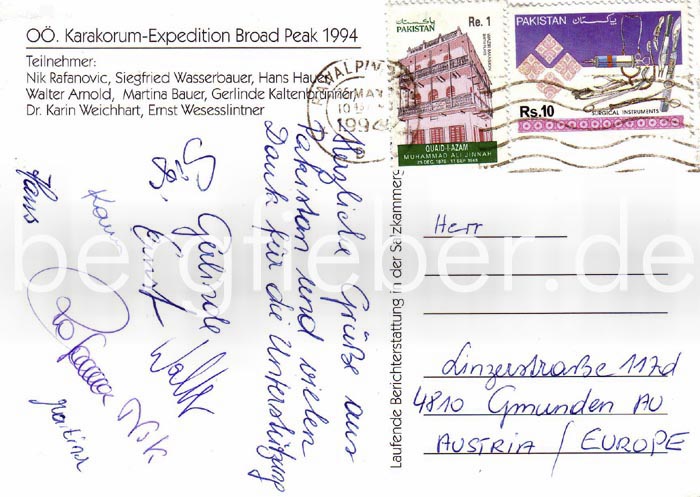 OÖ. Karakorum-Expedition Broad Peak 1994
Teilnehmer:
Nik Rafanovic, Siegfried Wasserbauer, Hans Hauer,
Walter Arnold, Martina Bauer, Gerlinde Kaltenbrunner,
Dr. Karin Weichhart, Ernst Wesesslintner
Herzliche Grüße aus
Pakistan und vielen
Dank für die Unterstützung
Gerlinde
Ernst
Walter
Karin
Hans
Nik
Martina
پاکستان
PAKISTAN
Re. 1
QUAID-I-AZAM
MUHAMMAD ALI JINNAH
25 DEC. 1876 - 11 SEP. 1948
PAKISTAN
پاکستان
Rs.10
SURGICAL INSTRUMENTS
RAWALPINDI
1994
Laufende Berichterstattung in der Salzkammerg
Herr
Linzerstraße 117d
4810 Gmunden AU
AUSTRIA / EUROPE
bergfieber.de